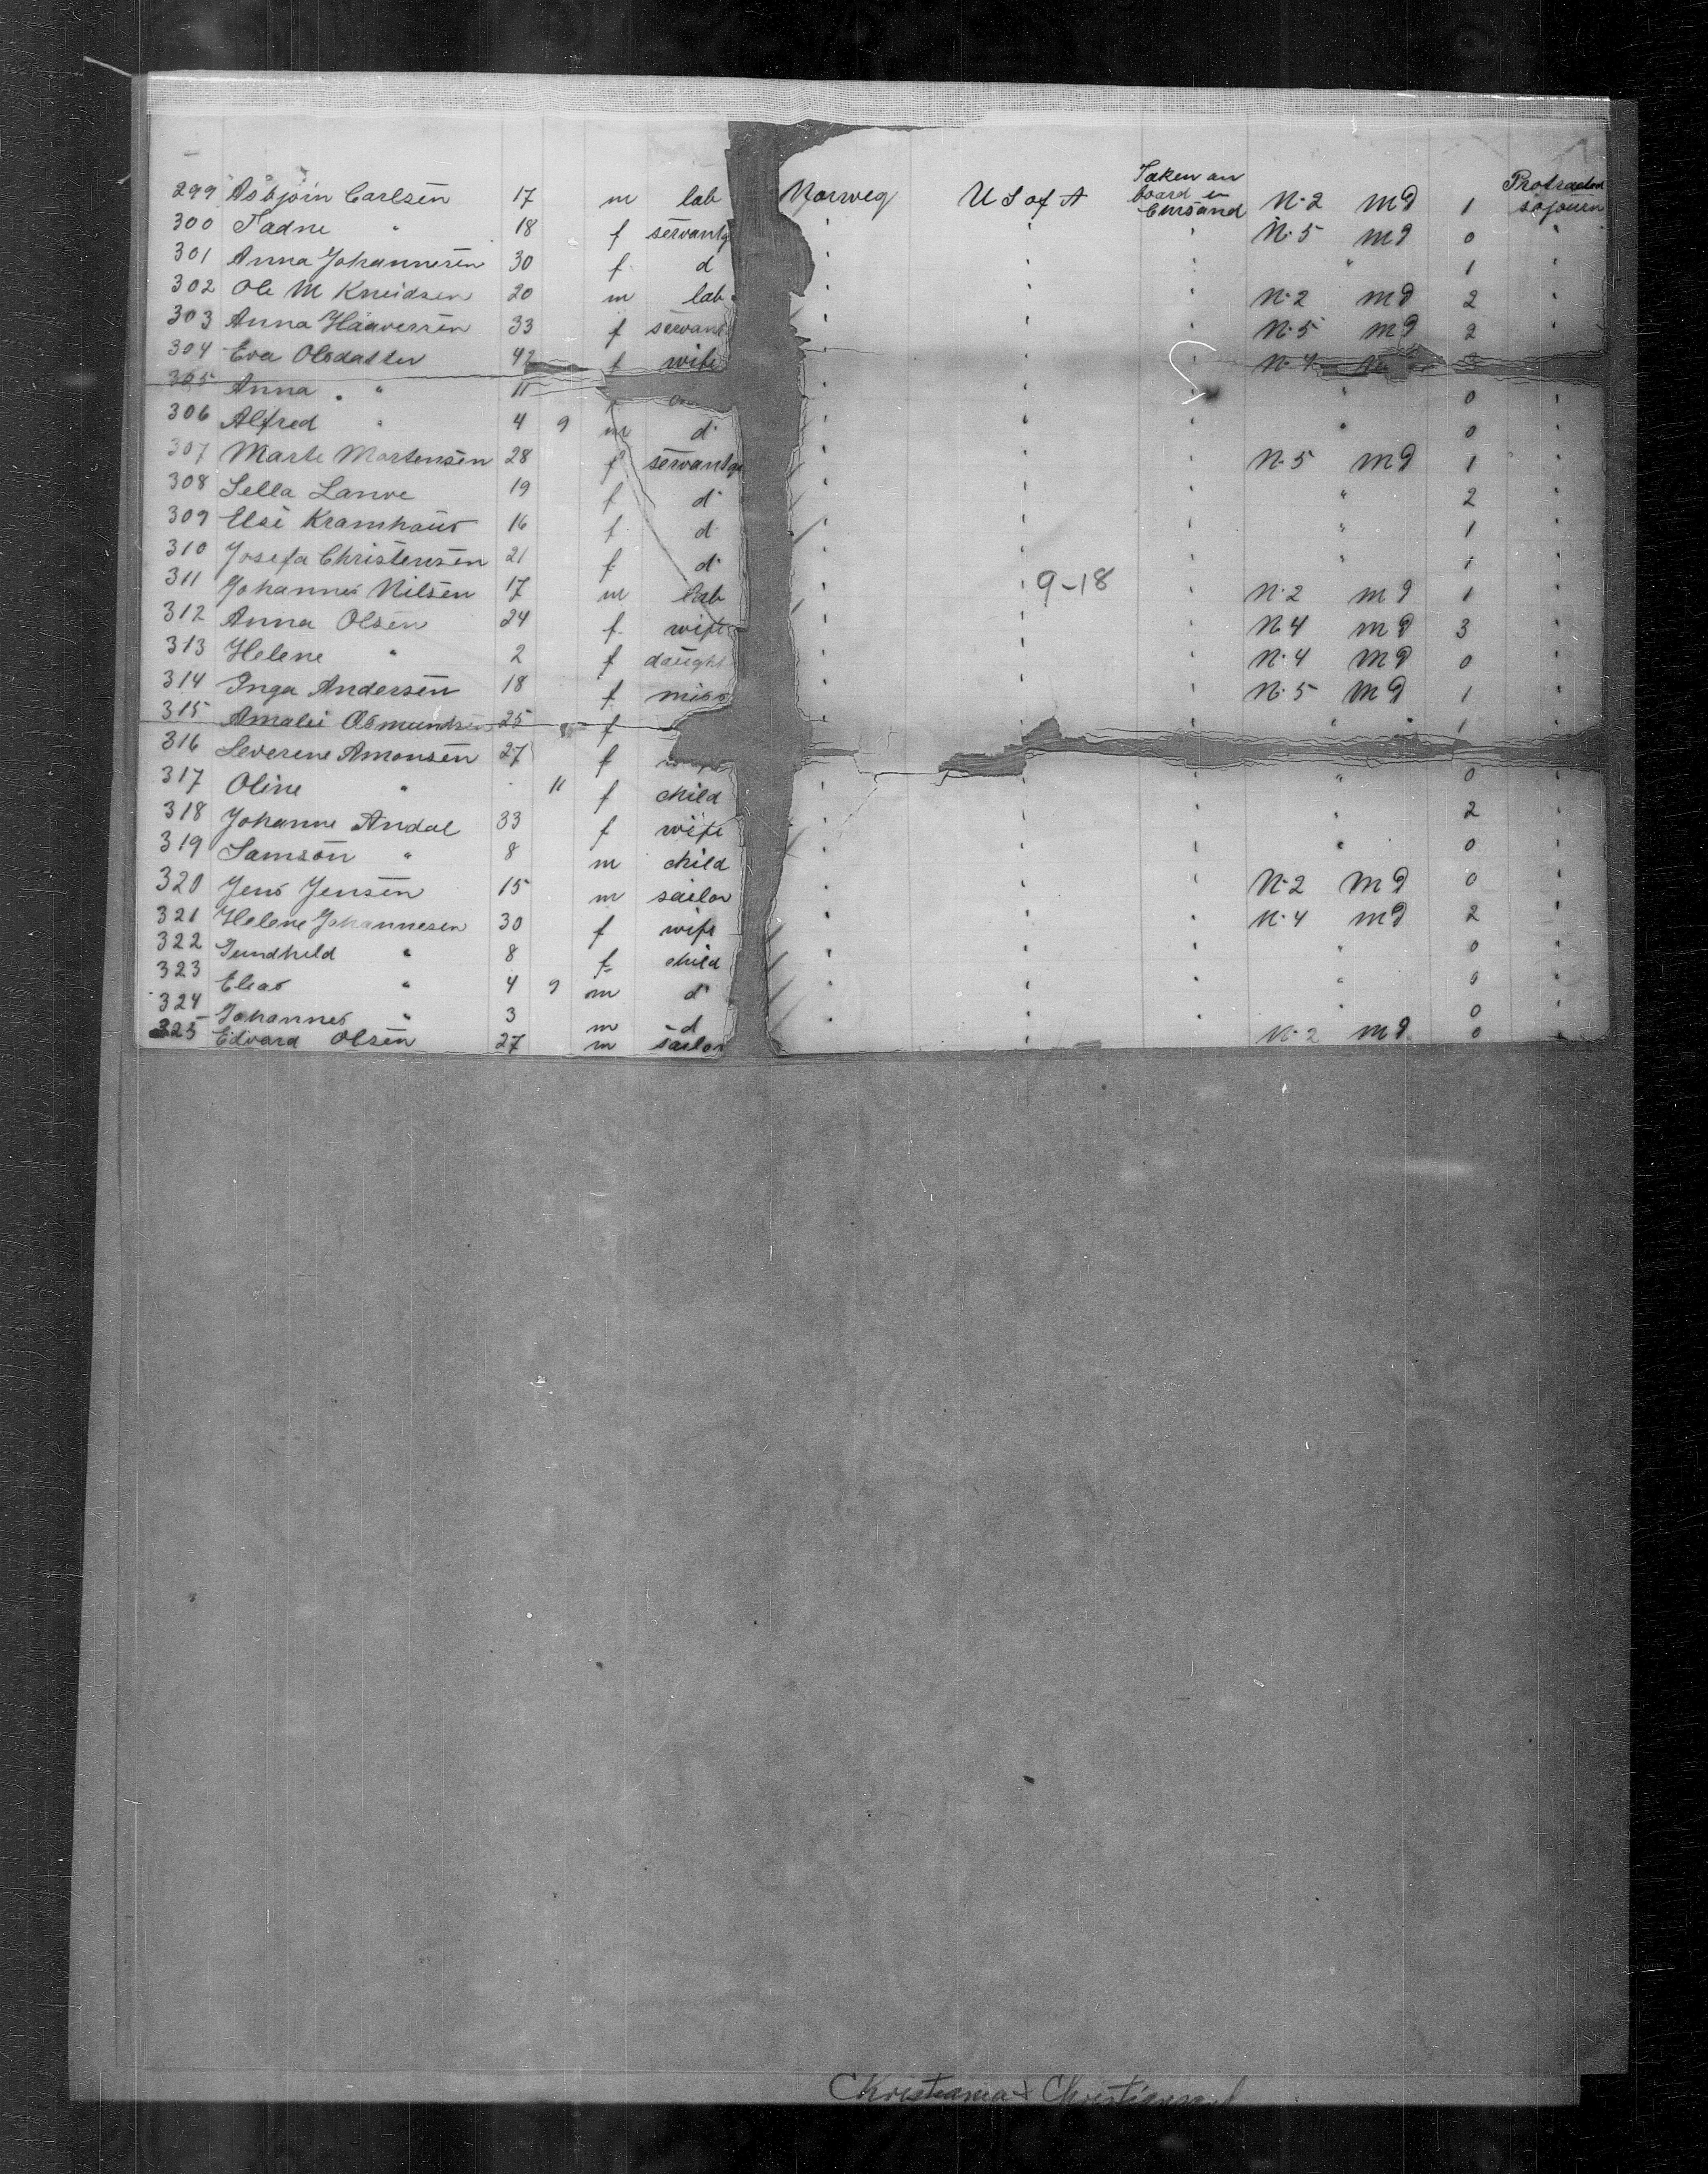 299 Asbjoin Carlsen 17 m lab Norweg U S of A Taken on board in Chrsand N·2 md 1 Protracted sojourn
300 Tadne " 18 f servantg ' ' ' N·5 md 0 '
301 Anna Johannesen 30 f d ' ' ' " 1 '
302 Ole M Kneidsen 20 m lab ' ' ' N·2 md 2 '
303 Anna Håaversen 33 f servant ' ' ' N·5 md 2 '
304 Eva Olsdatter 42 f wife ' N·4
305 Anna " 11 ' ' ' " 0 '
306 Alfred " 4 9 m d ' ' ' " 0 '
307 Marte Mortensen 28 f servantg ' ' ' N·5 md 1 '
308 Sella Lanve 19 f d ' ' ' " 2 '
309 Elsi Kramhaus 16 f d ' ' ' " 1 '
310 Josefa Christensen 21 f d ' ' ' " 1 '
311 Johannes Nilsen 17 m lab ' ' 9-18 ' N·2 md 1 '
312 Anna Olsen 24 f wife ' ' ' N4 md 3 '
313 Helene " 2 f daught ' ' ' N·4 md 0 '
314 Inga Andersen 18 f miss ' ' ' N·5 md 1 '
315 Amalei Osmundsen 25 f ' ' ' " " 1 '
316 Severene Amonsen 27 f
317 Oline " 11 f child ' ' ' " 0 '
318 Johanne Andal 33 f wife ' ' ' " 2 '
319 Samson " 8 m child ' ' ' " 0 '
320 Jens Jensen 15 m sailor ' ' ' N·2 md 0 '
321 Helene Johannesen 30 f wife ' ' ' N·4 md 2 '
322 Gundhild " 8 f child ' ' ' " 0 '
323 Elias " 4 9 m d ' ' ' " 0 '
324 Johannes " 3 m d ' ' ' " 0 '
325 Edvard Olsen 27 m sailor ' N·2 md 0 '
Christiania & Christiansand